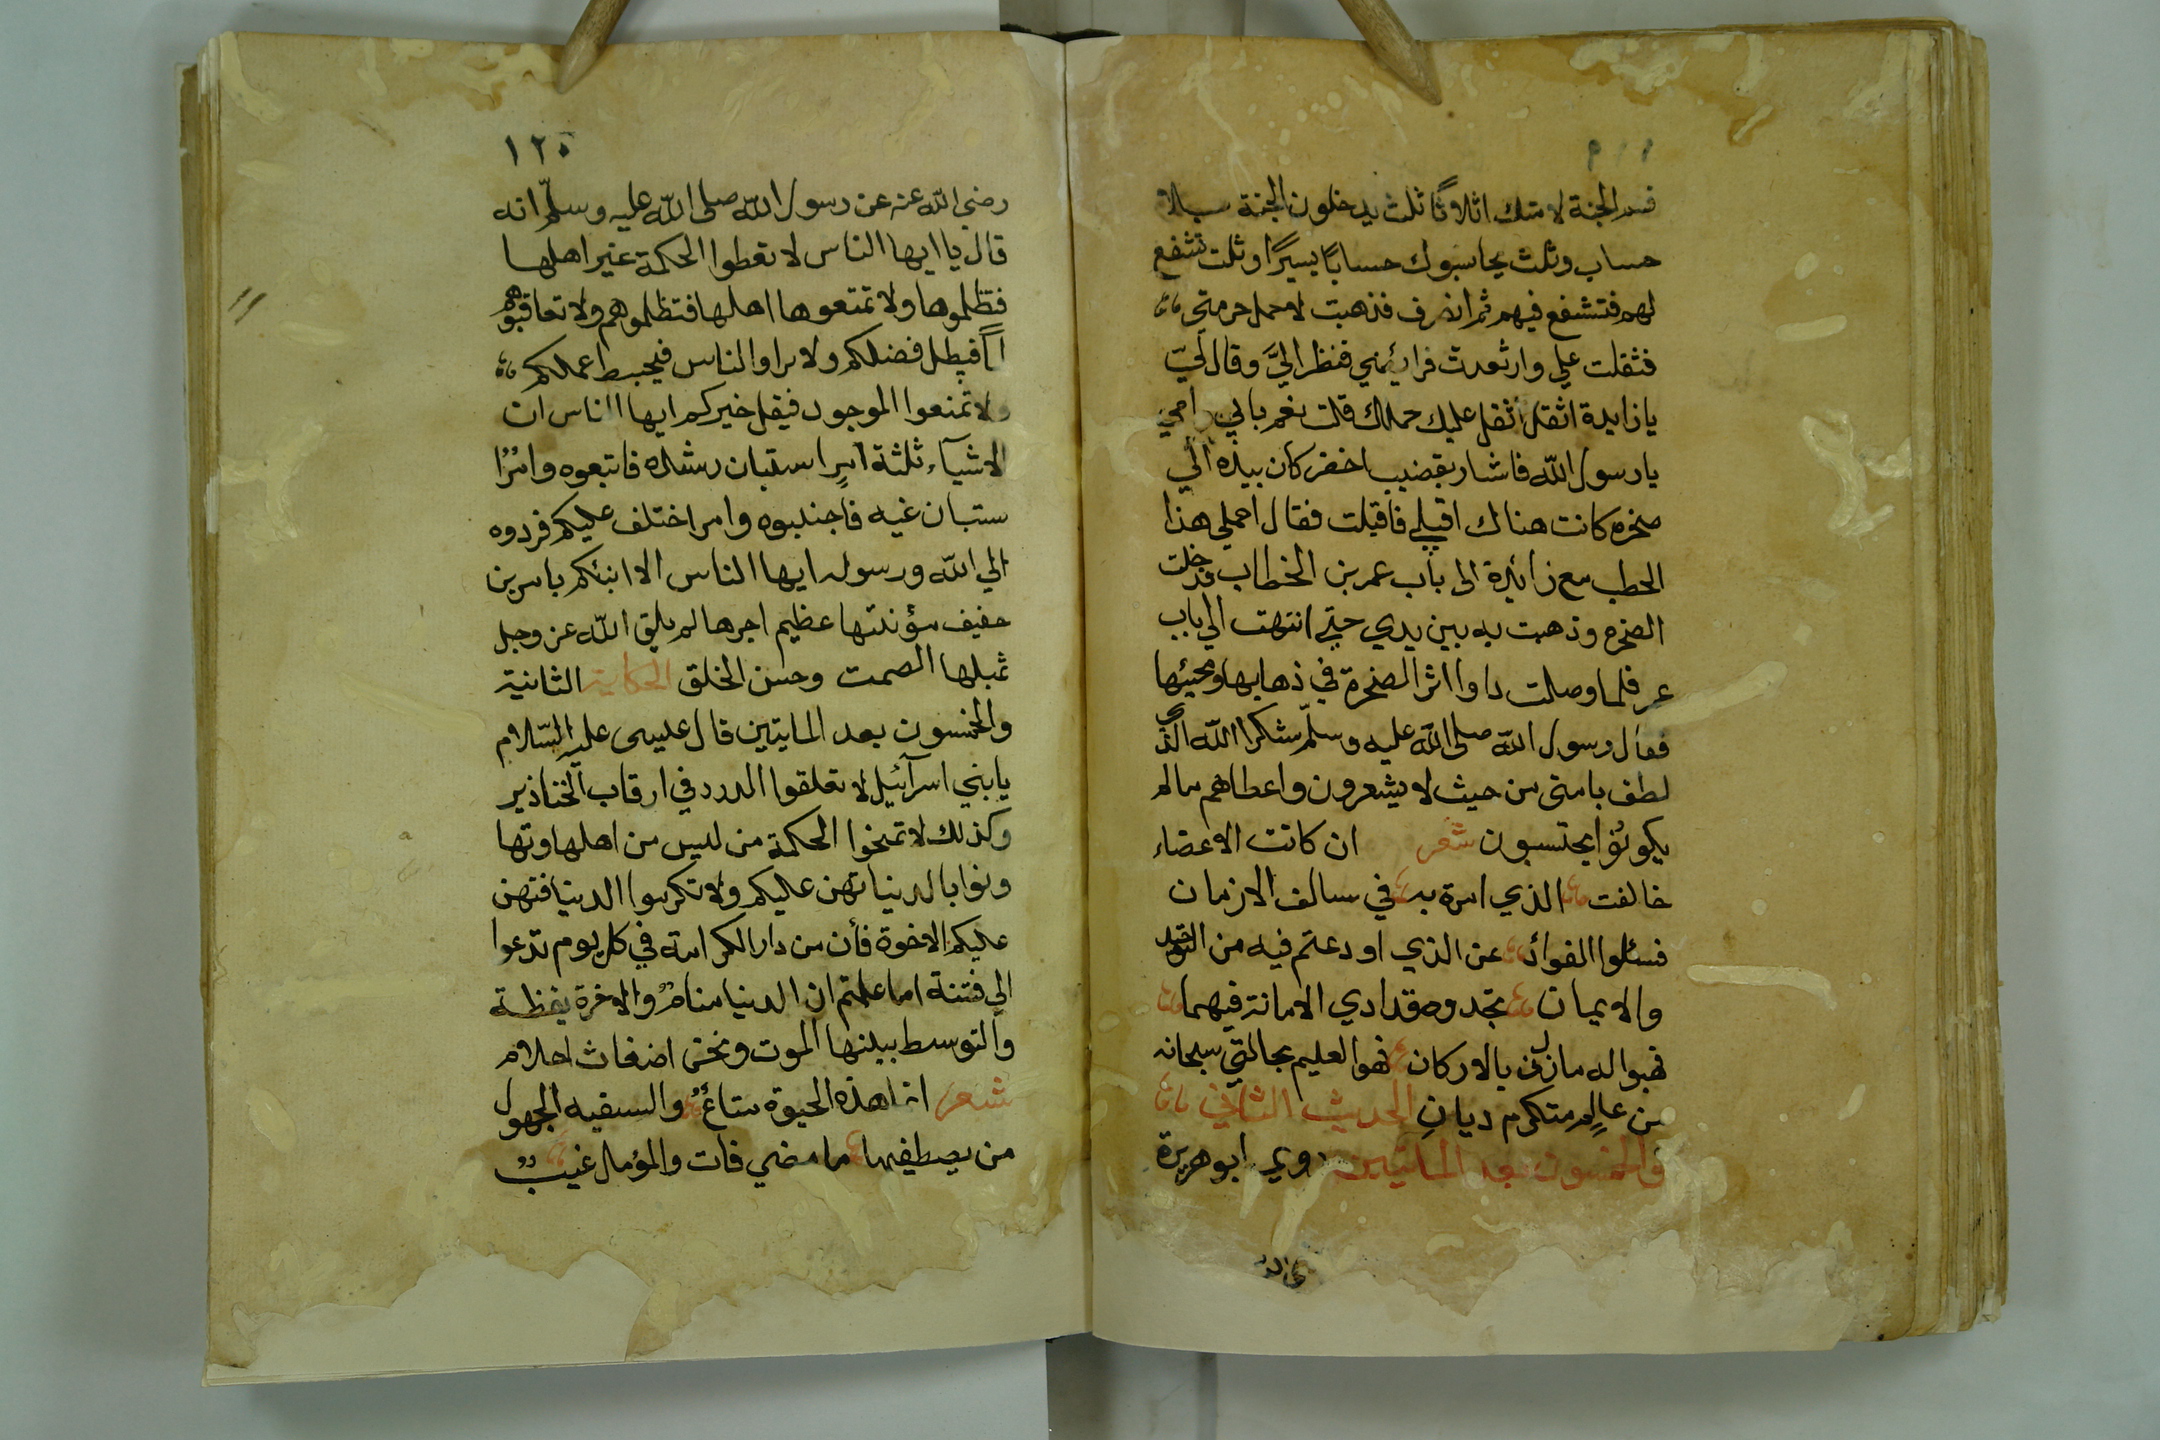 قسم الجنة لامتك اثلاثًا ثلث يدخلون الجنة بلا
حساب وثلث يحاسبون حسابًا يسيرًا وثلث تشفع
لهم فتشفع فيهم ثم انصرف فذهبت لاحمل حرمتي
فثقلت علي وارتعدت فرايصي فنظر اليَّ وقال لي
يا زايدة اثقل اثقل عليك حملك قلت نعم بابي وامي
يا رسول الله فاشار بقضيب اخضر كان بيده الي
صخرة كانت هناك اقبلي فاقبلت فقال احملي هذا
الحطب مع زائدة الى باب عمر بن الخطاب فدخلت
الصخرة وذهبت به بين يدي حتي انتهت الي باب
عمر فلما وصلت راوا اثر الصخرة في ذهابها ومجيئها
فقال رسول الله صلى الله عليه وسلم شكرا لله الذي
لطف بامتى من حيث لا يشعرون واعطاهم ما لم
يكونوا يحتسبون شعر ان كانت الاعضاء
خالفت الذي امرة به في سالف الازمان
فسئلوا الفوائد عن الذي اودعتم فيه من التوحيد
والايمان تجدوه قد ادي الامانة فيهما
فهبوا له ما زل بالاركان فهو العليم بحالتي سبحانه
من عالم متكرم ديانِ الحديث الثاني
والخمسون بعد المائتين روي ابو هريرة
١٢٠
رضي الله عنه عن رسول الله صلى الله عليه وسلم انه
قال يا ايها الناس لا تعطوا الحكمة غير اهلها
فتظلموها ولا تمنعوها اهلها فتظلموهم ولا تعاقبوهم
فيبطل فضلكم ولا تراوا الناس فيحبط اعملكم
ولا تمنعوا الموجود فيقل خيركم ايها الناس ان
الاشيآء ثلثة امرٍ استبان رشده فاتبعوه وامرًا
ستبان غيه فاجتنبوه وامر اختلف عليكم فردوه
الي الله ورسوله ايها الناس الا انبئكم بامرين
خفيف مؤنتها عظيم اجرها لم يلق الله عز وجل
بمثلها الصمت وحسن الخلق الحكاية الثانية
والخمسون بعد المايتين قال عليسى عليه السّلام
يا بني اسرآئيل لا تعلقوا الدرر في ارقاب الخنازير
وكذلك لا تمنحوا الحكمة من ليس من اهلها وتها
ونوا بالدنيا تهن عليكم ولا تكرموا الدنيا فتهن
عليكم الاخوة فأن من دار الكرامة في كل يوم تدعوا
الي فتنة اما علمتم ان الدنيا منامٌ والاخرة يقظة
والتوسط بينها الموت ونحن اضغاث احلام
شعر انما هذه الحيوة متاعٌ والسفيه الجهول
من يصطفيها ما مضي فات والمؤمل غيبٌ